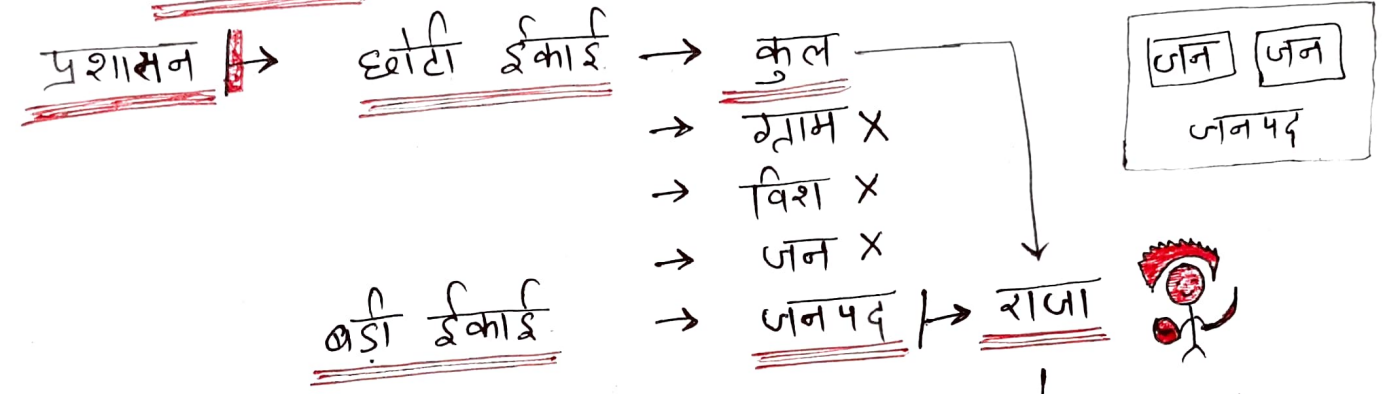 प्रशासन → छोटी ईकाई → कुल
→ ग्राम X
→ विश X
→ जन X
बड़ी ईकाई → जनपद → राजा
जन जन
जनपद